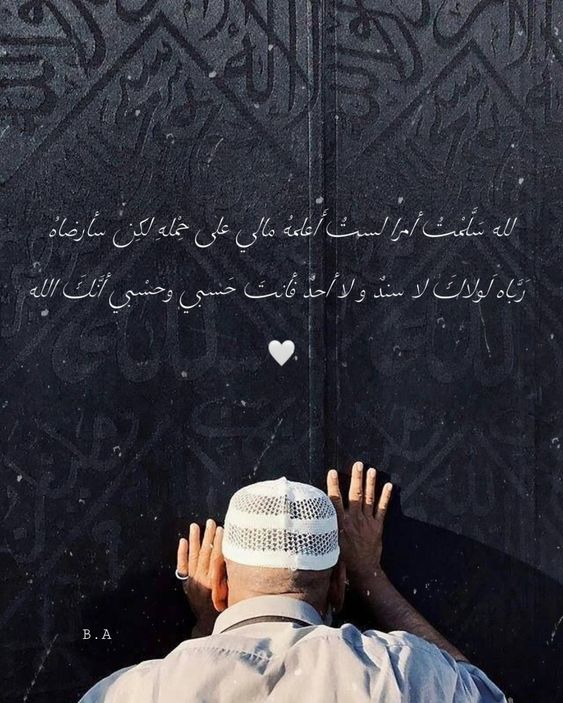 لله سَلَّمْتُ أمرا لستُ أعلمهُ مالي على حِمْلهِ لكِن سأرضاهُ
رَبَّاه لَولاكَ لا سندٌ و لا أحدٌ فأنتَ حَسبي وحسْبي أنَّكَ الله
🤍
B.A